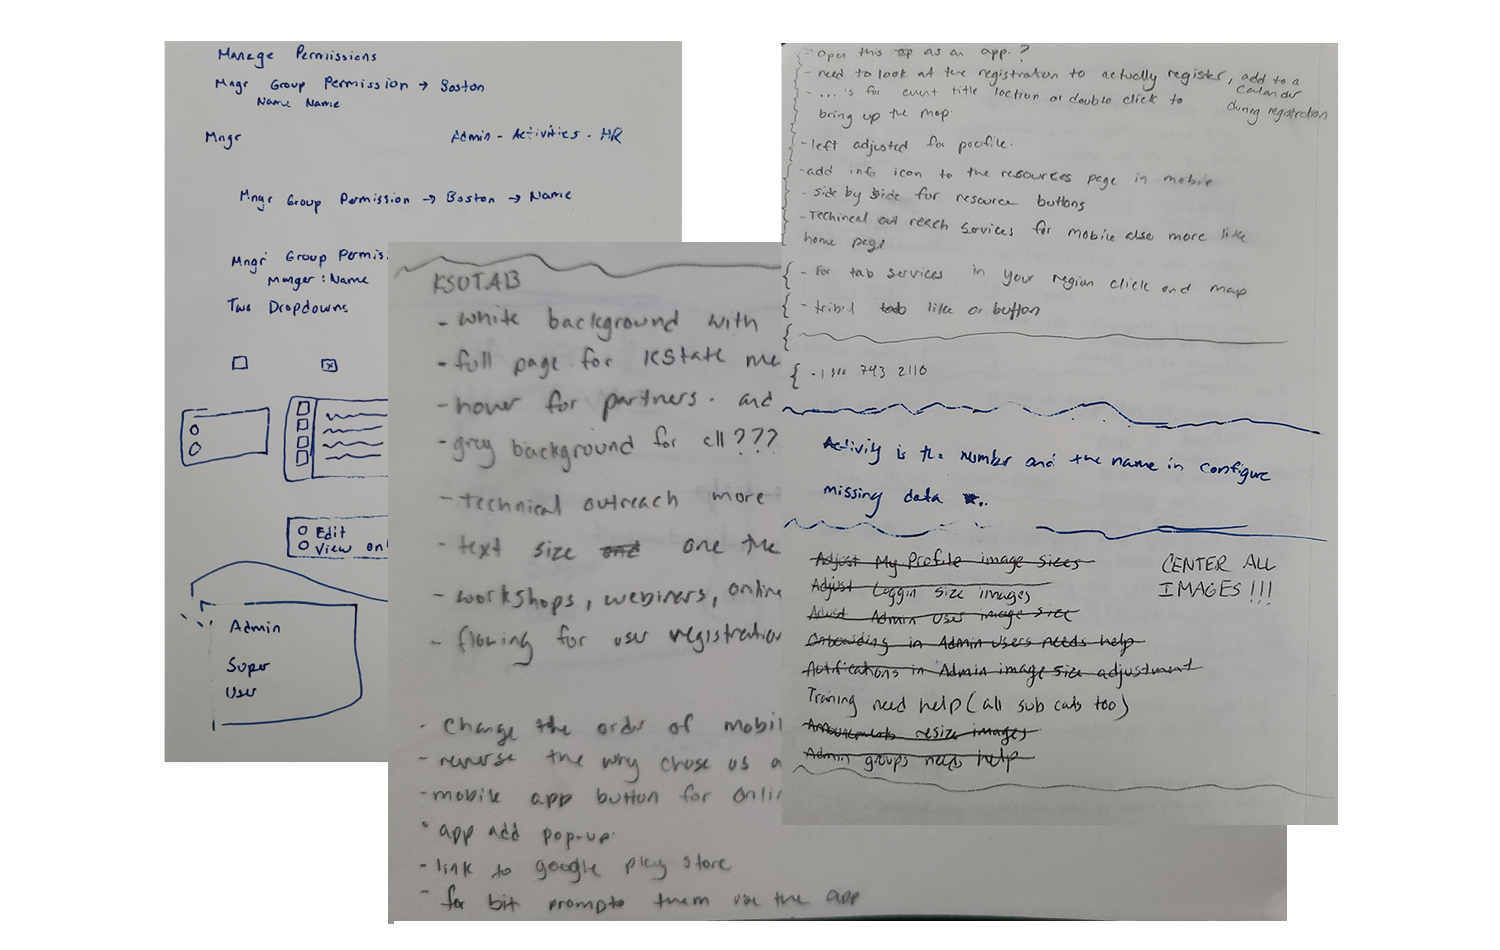 Manage Permissions
Mngr Group Permission → Boston
Name Name
Mngr
Admin - Activities - HR
Mngr Group Permission → Boston → Name
Mngr Group Permis.
Manger : Name
Two Dropdowns
Edit
View onl
Admin
Super
User
KSUTAB
- white background with
- full page for KState me
- hover for partners. and
- grey background for all???
- technical outreach more
- text size and one the
- workshops, webiners, online
- flowing for user registration
- Change the order of mobil
- reverse the why chose us a
- mobile app button for onlin
- app add pop-up
- link to google play store
- for bit prompts them use the app
- Open this as an app.?
- need to look at the registration to actually register, add to a
calander
during registration
- ...'s for event title loction or double click to
bring up the map
- left adjusted for profile.
- add info icon to the resources page in mobile
- side by side for resource buttons
- Techineal out reach Services for mobile also more like
home page
- For tab services in your region click and map
- tribal tab like a button
743 2110
Activity is the number and the name in configure
missing data
Adjust My Profile image sizes
Adjust Loggin size images
Adjust Admin User image size
Onboarding in Admin users needs help
Notifications in Admin image size adjustment
Training need help (all sub cats too)
Announcements resize images
Admin groups needs help
CENTER ALL
IMAGES!!!